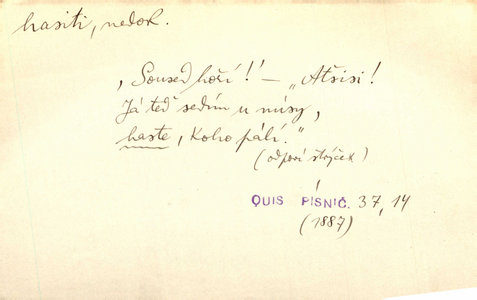 hasiti, nedok.
„Soused hoří!“ – „Atsisi!
Já teď sedím u mísy,
haste, koho pálí.“
(odpoví strýček)
QUIS PÍSNIČ. 37, 14
(1887)